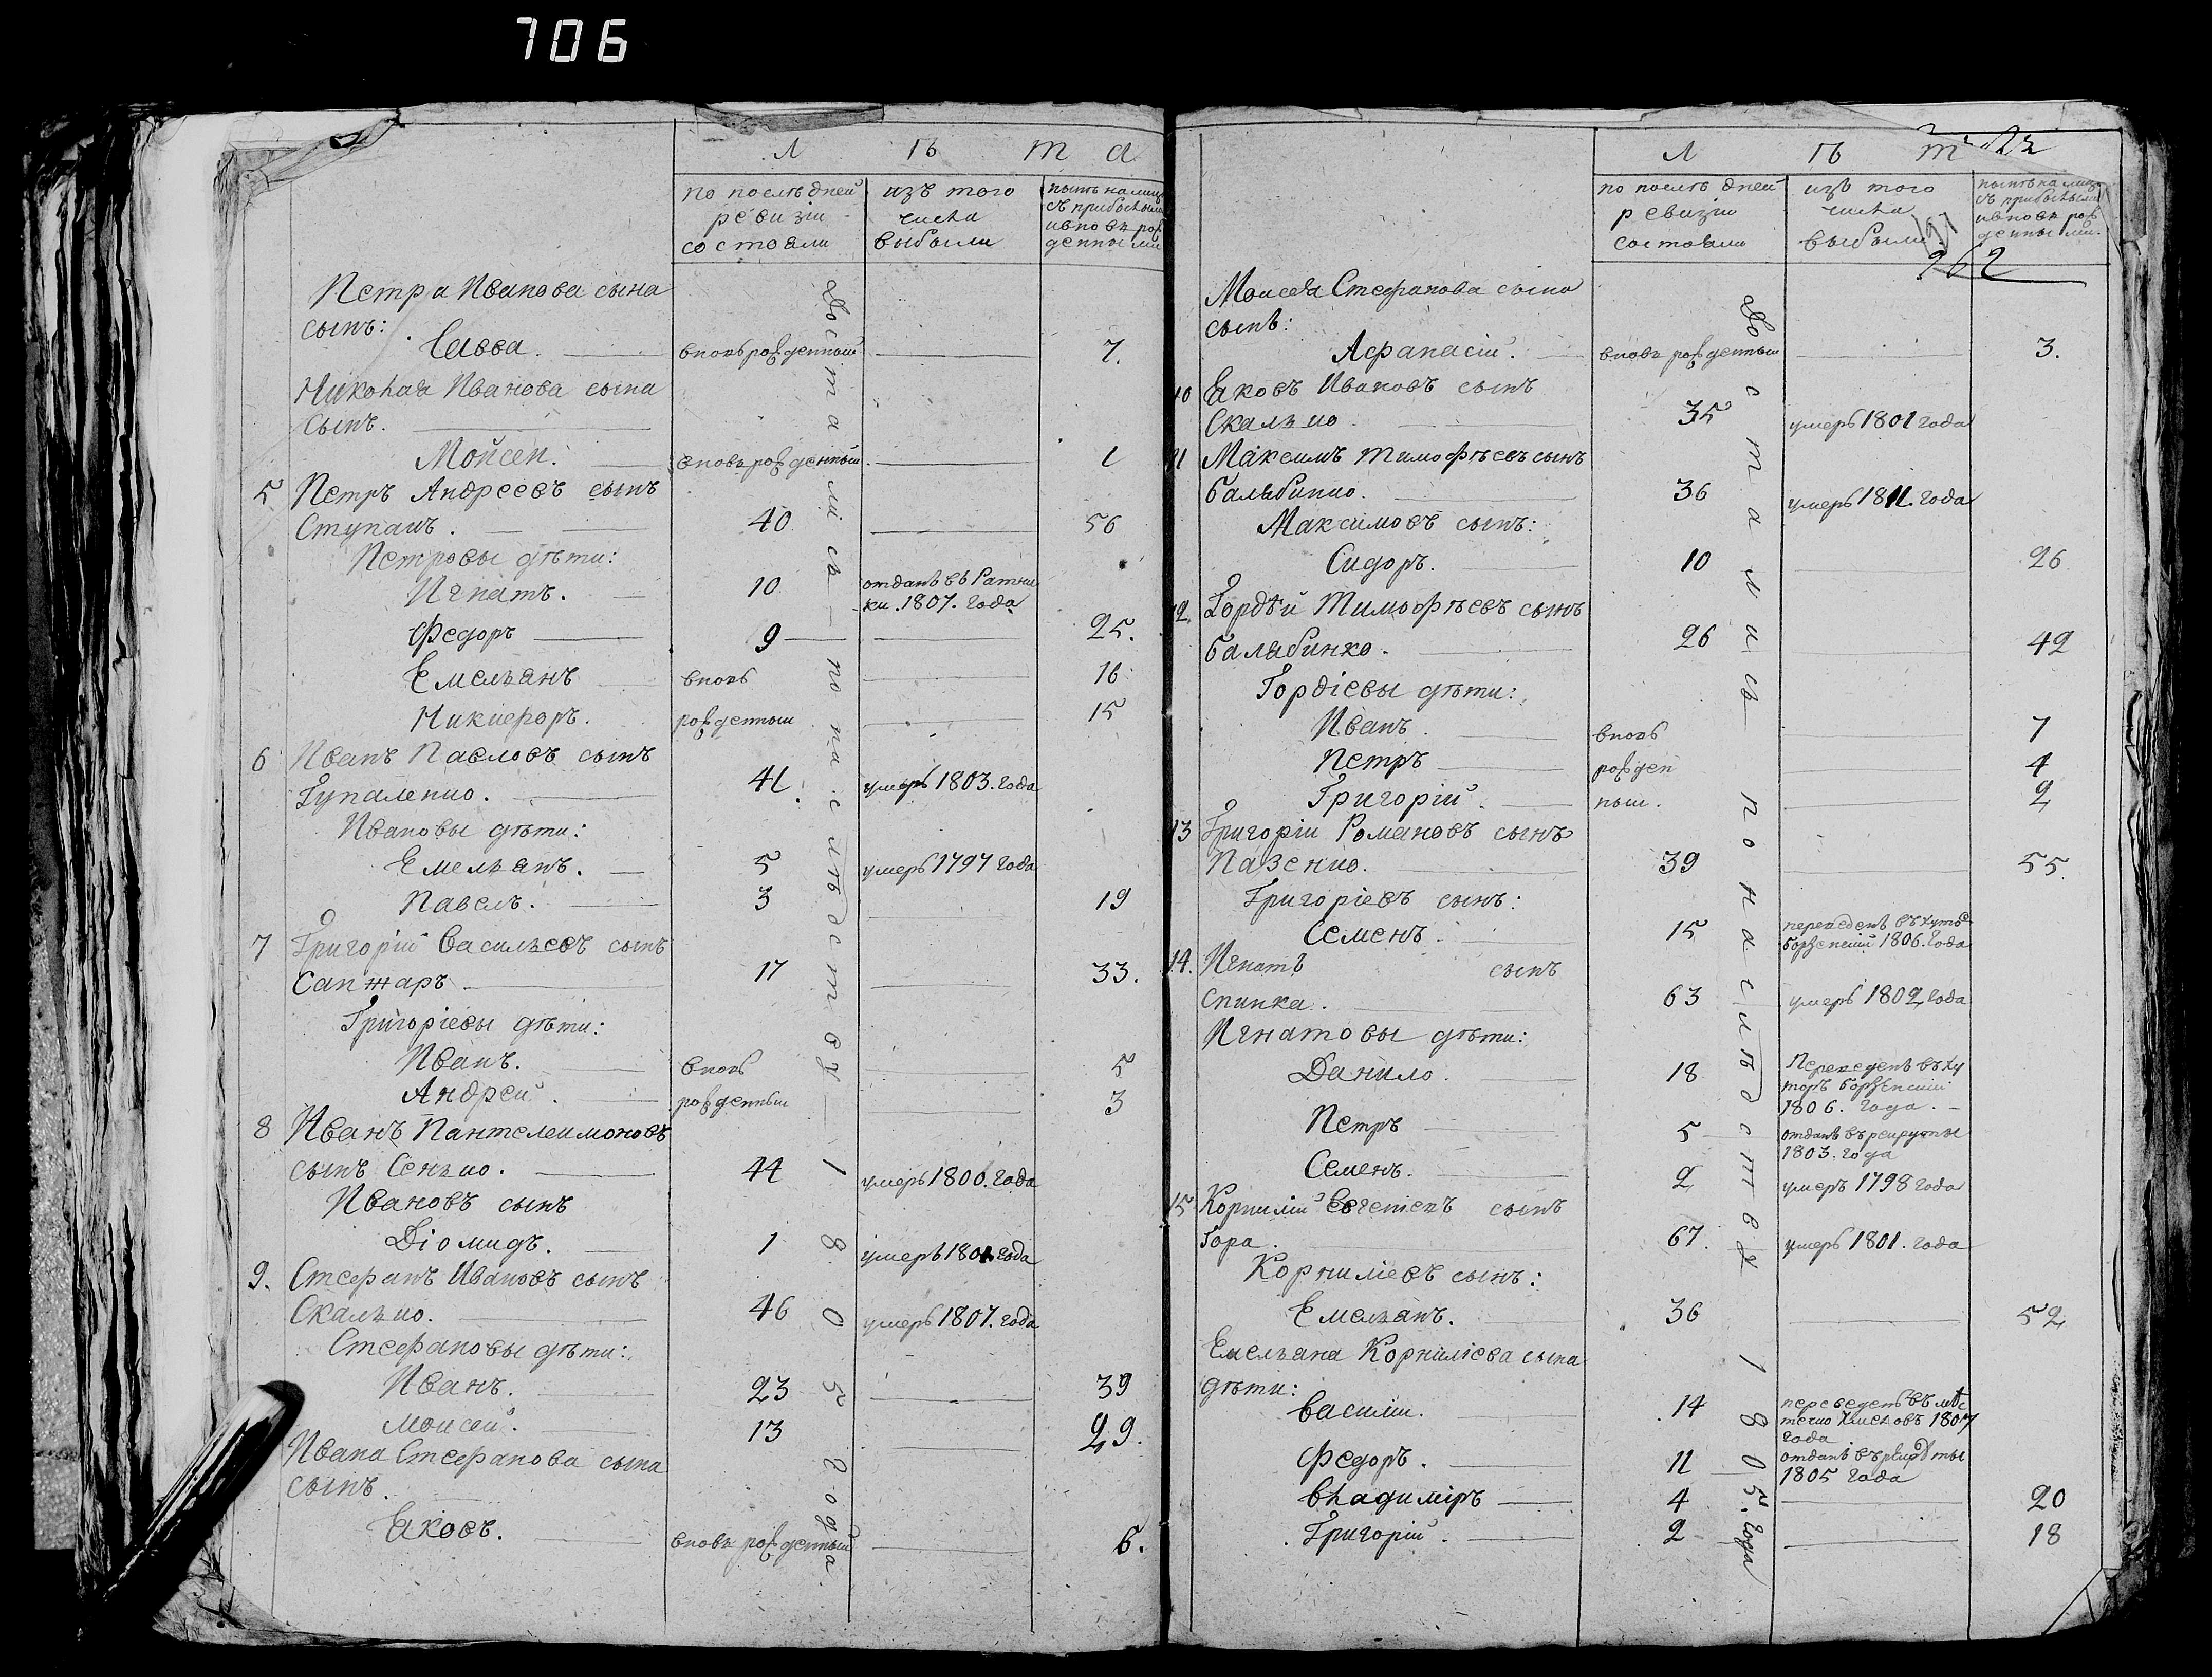 706
Л ѣ т а
по последней ревизіи состояли
изъ того числа выбыли
нынѣ на лицо съ прибылыми и вновь рожденными
Петра Иванова сына
сынъ:
Савва. вновь рожденный 7.
Николая Иванова сына
сынъ.
Мойсей. вновь рожденный 1
5 Петръ Андреевъ сынъ
Ступакъ. 40 56
Петровы дѣти:
Игнатъ. 10 отданъ въ Ратники. 1807. года
Федоръ 9 25.
Емельянъ вновь 16
Никифоръ. рожденныи 15
6 Иванъ Павловъ сынъ
Гупаленко. 41. умеръ 1803. года
Ивановы дѣти:
Емельянъ. 5 умеръ 1797 года
Павелъ. 3 19
7 Григорій Васильевъ сынъ
Санжаръ 17 33.
Григоріевы дѣти:
Иванъ. вновь 5
Андрей. рожденныи 3
8 Иванъ Пантелеимоновъ
сынъ Сенько. 44 умеръ 1800. года
Ивановъ сынъ
Діомидъ. 1 умеръ года
9. Стефанъ Ивановъ сынъ
Скалько. 46 умеръ 1807. года
Стефановы дѣти:
Иванъ. 23 39
Моисей. 13 29.
Ивана Стефанова сына
сынъ.
Яковъ. вновь рожденный 6.
Достались по наслѣдству 1805 года.
Л ѣ т
262
по последней ревизіи состояли
изъ того числа выбыли
нынѣ на лицо съ прибылыми и вновь рожденными.
Моисея Стефанова сына
сынъ:
Афанасій. вновь рожденныи 3.
10 Яковъ Ивановъ сынъ
Скалько. 35 умеръ 1801 года
11 Максимъ Тимофѣевъ сынъ
Балябинко. 36 умеръ 1811. года
Максимовъ сынъ:
Сидоръ. 10 26
12 Гордѣй Тимофѣевъ сынъ
Балябинко. 26 42
Гордіевы дѣти:
Иванъ. вновь 7
Петръ рожден 4
Григорій. ныи. 2
13 Григоріи Романовъ сынъ
Пазенко. 39 55.
Григоріевъ сынъ:
Семенъ. 15 переведенъ въ хуторъ Борзенскій 1806. года
14. Игнатъ сынъ
Спинка. 63 умеръ 1802 года
Игнатовы дѣти:
Данило. 18 Переведенъ въ хуторъ Борзенскій 1806. года.
Петръ 5 отданъ въ рекруты 1803. года
Семенъ. 2 умеръ 1798 года
15 Корнилій сынъ
Гора. 67. умеръ 1801. года
Корниліевъ сынъ:
Емельянъ. 36 52
Емельяна Корниліева сына
дѣти:
Василіи. 14 переведенъ въ мѣстечко 1807 года
Федоръ. 11 отданъ въ рекруты 1805 года
Владиміръ 4 20
Григорій. 2 18
Достались по наслѣдству 1805. года